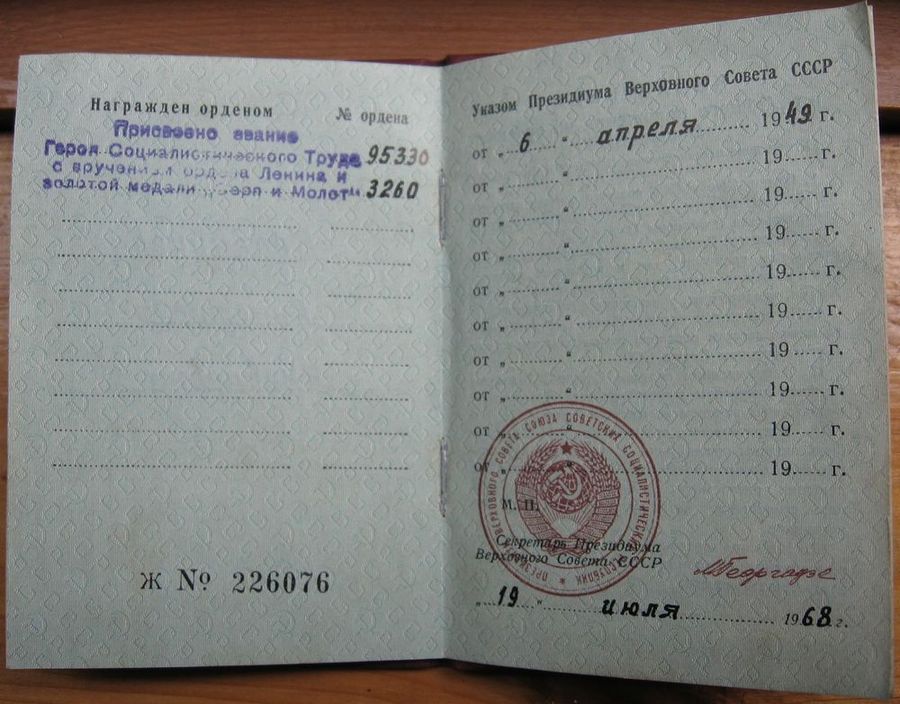 Награжден орденом № ордена
Присвоено звание
Героя Социалистического Труда 95330
с вручением ордена Ленина и
золотой медали „Серп и Молот“ 3260
Ж № 226076
Указом Президиума Верховного Совета СССР
от „ 6 “ апреля 1949 г.
от „ “ 19 г.
от „ “ 19 г.
от „ “ 19 г.
от „ “ 19 г.
от „ “ 19 г.
от „ “ 19 г.
от „ “ 19 г.
от „ “ 19 г.
от „ “ 19 г.
М. П.
Секретарь Президиума
Верховного Совета СССР
МГеоргадзе
„ 19 “ июля 1968 г.
ПРЕЗИДИУМ ВЕРХОВНОГО СОВЕТА СОЮЗА СОВЕТСКИХ СОЦИАЛИСТИЧЕСКИХ РЕСПУБЛИК